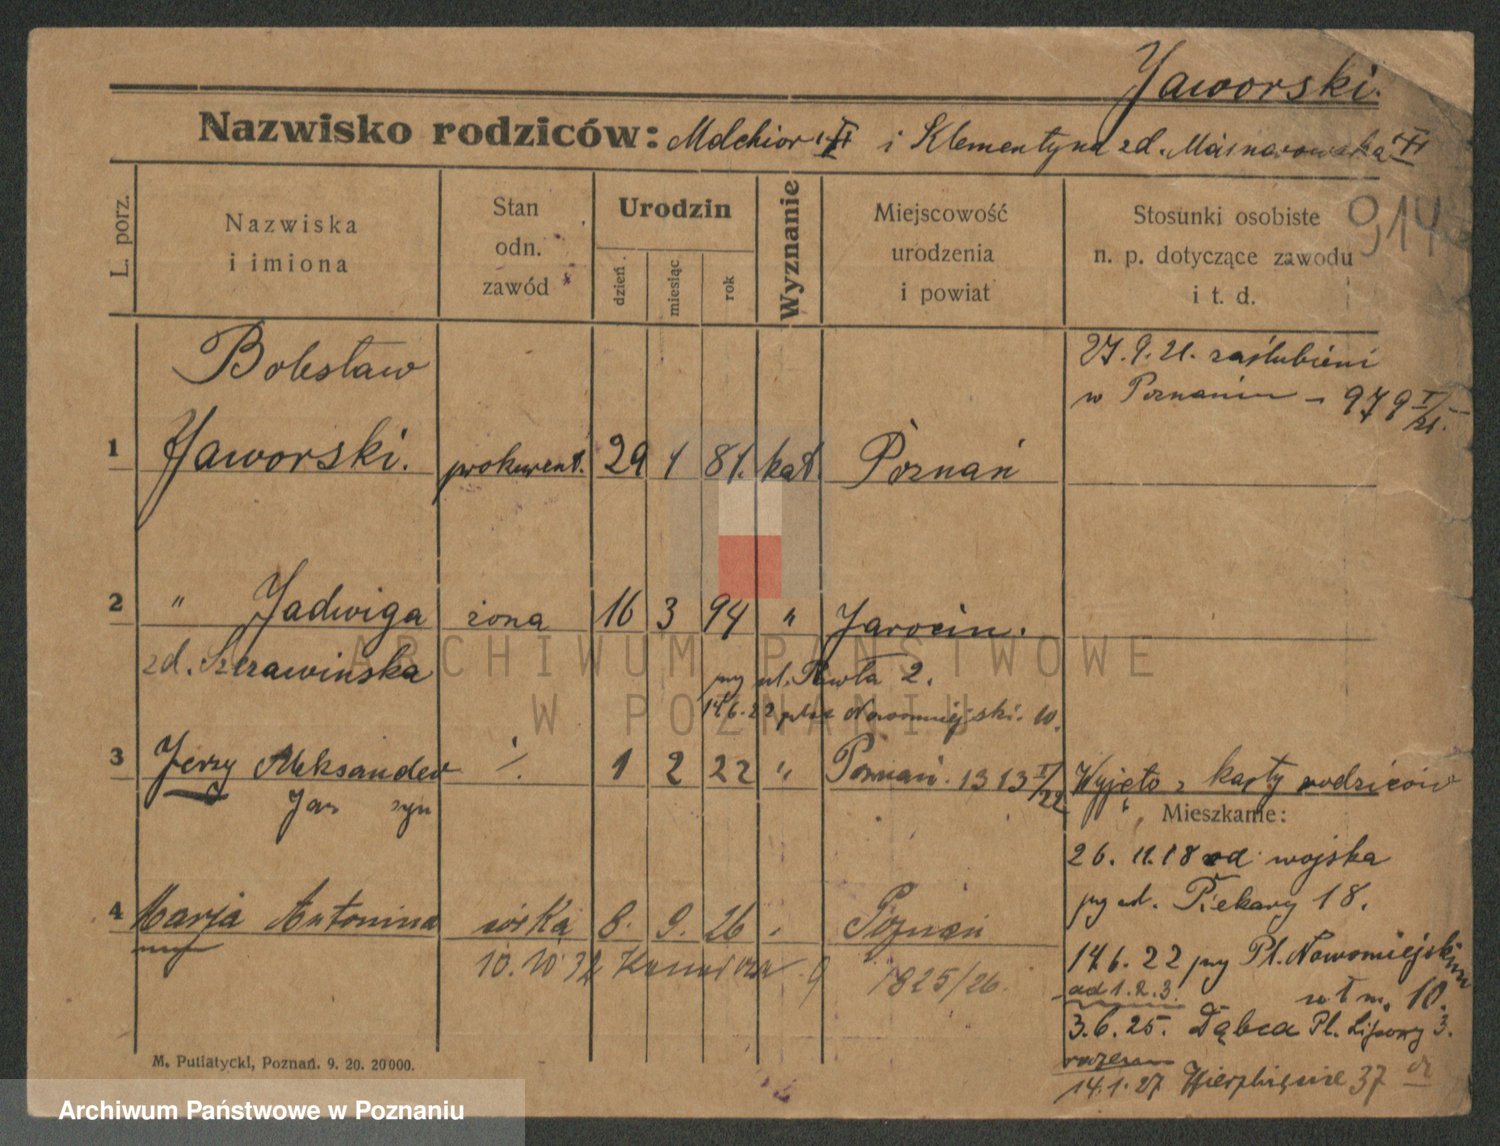 Jaworski.
Nazwisko rodziców: Melchior i Klementyna zd.
914
L. porz.
Nazwiska i imiona
Stan odn. zawód
Urodzin
dzień
miesiąc
rok
Wyznanie
Miejscowość urodzenia i powiat
Stosunki osobiste n. p. dotyczące zawodu i t. d.
27.9.21. zaślubieni
w Poznaniu - 979 I/21.
Bolesław
1 Jaworski. prokurent. 29 1 81. kat. Poznań
2 " Jadwiga żona 16 3 94 " Jarocin.
zd. Szerawińska
przy ul. Pawła 2.
14.6.22 plac Nowomiejski. 10.
3 Jerzy Aleksander ./. 1 2 22 " Poznań. 1313 I/22 Wyjęto z karty rodziców
Jan syn
Mieszkanie:
26.11.18 od wojska
przy ul. Piekary 18.
4 Marja Antonina córka 8. 9. 26 Poznań
10.10.32 9 1825/26.
14.6.22 przy Pl. Nowomiejskim
ad 1.2.3. 10.
3.6.25. Dąbca Pl. Lipowy 3.
razem
14.1.27 Wierzbięcice 37
M. Putiatycki, Poznań. 9. 20. 20000.
ARCHIWUM PAŃSTWOWE
W POZNANIU
Archiwum Państwowe w Poznaniu